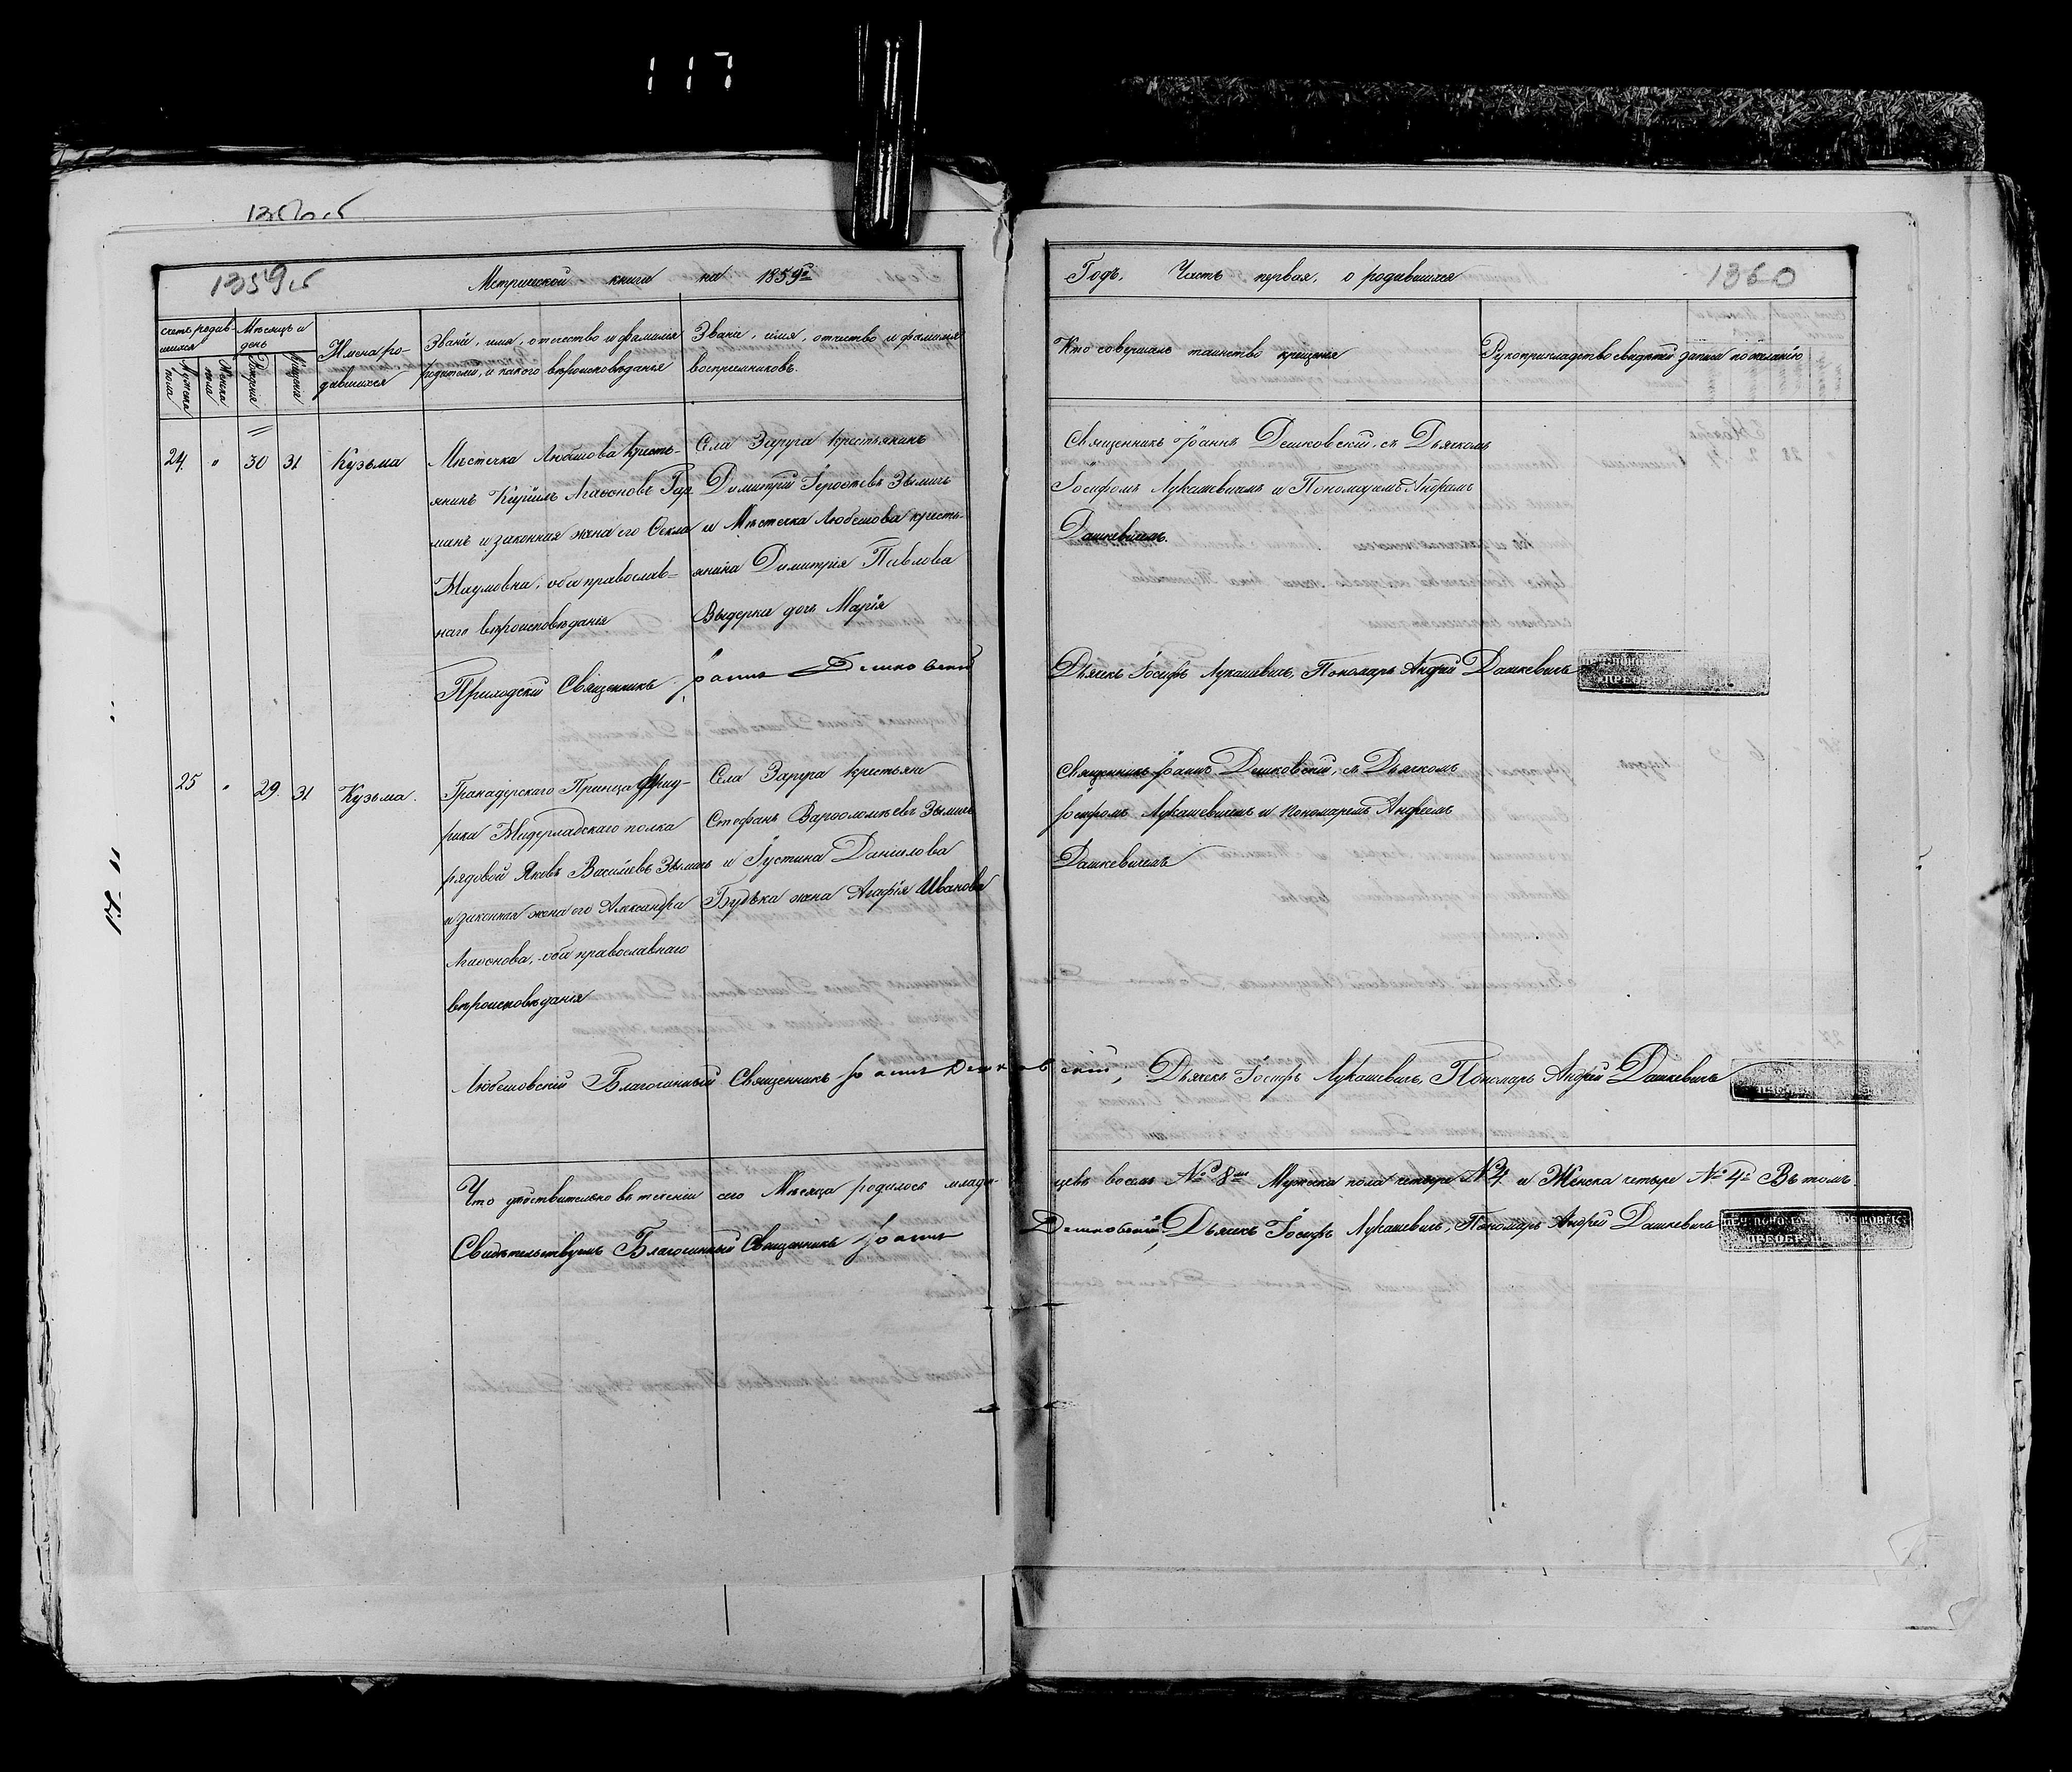 117
1359
Метрической книги на 1859й
Годъ, Часть первая, о родившихся
1360
Счетъ родив-
шихся
Мужеска
пола
Женска
пола
Мѣсяцъ и
день
Рожденія
Крещенія
Имена ро-
дившихся
Званіе, имя, отчество и фамилія
родителей, и какого вѣроисповѣданія
Званіе, имя, отчество и фамилія
воспріемниковъ.
Кто совершалъ таинство крещенія
Рукоприкладство свидѣтелей записи по желанію
24. " 30 31 Кузьма
Мѣстечка Любешова кресть-
янинъ Кирилъ Агаѳоновъ
и законная жена его Ѳекла
Наумовна, оба православ-
наго вѣроисповѣданія
Села Заруга крестьянинъ
Димитрій Зымичъ
и Мѣстечка Любешова кресть-
янина Димитрія Павлова
Выдерка дочь Марія
Священникъ Іоаннъ Дешковскій, съ Дьячкомъ
Іосифомъ Лукашевичемъ и Пономаремъ Андреемъ
Дашкевичемъ.
Приходскій Священникъ Іоаннъ Дешковскій
Дьячекъ Іосифъ Лукашевичъ, Пономарь Андрей Дашкевичъ
25 " 29. 31 Кузьма.
Гранадерского Принца Фрид-
рика Нидерладскаго полка
рядовой Яковъ Василіевъ Зымичъ
и законная жена его Александра
Агаѳонова, оба православнаго
вѣроисповѣданія
Села Заруга крестьяне
Стефанъ Варфоломѣевъ Зымичъ
и Іустина Даніилова
Будька жена Агафія Иванова
Священникъ Іоаннъ Дешковскій, съ Дьячкомъ
Іосифомъ Лукашевичемъ и Пономаремъ Андреемъ
Дашкевичемъ
Любешовскій Благочинный Священникъ Іоаннъ Дешковскій, Дьячекъ Іосифъ Лукашевичъ, Пономарь Андрей Дашкевичъ
Что дѣйствительно въ теченіи сего Мѣсяца родилось младен-
цевъ восемь № 8 Мужеска пола четыре № 4 и Женска четыре № 4 Въ томъ
Свидѣтельствуемъ Благочинный Священникъ Іоаннъ
Дешковскій, Дьячекъ Іосифъ Лукашевичъ, Пономарь Андрей Дашкевичъ